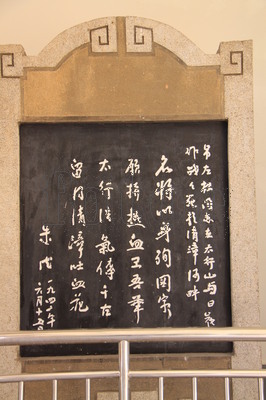 吊左权同志在太行山与日寇
作战战死于清漳河畔
名将以身殉国家
愿拼热血卫吾华
太行浩气传千古
留得清漳吐血花
朱德
一九四二年
六月十五日